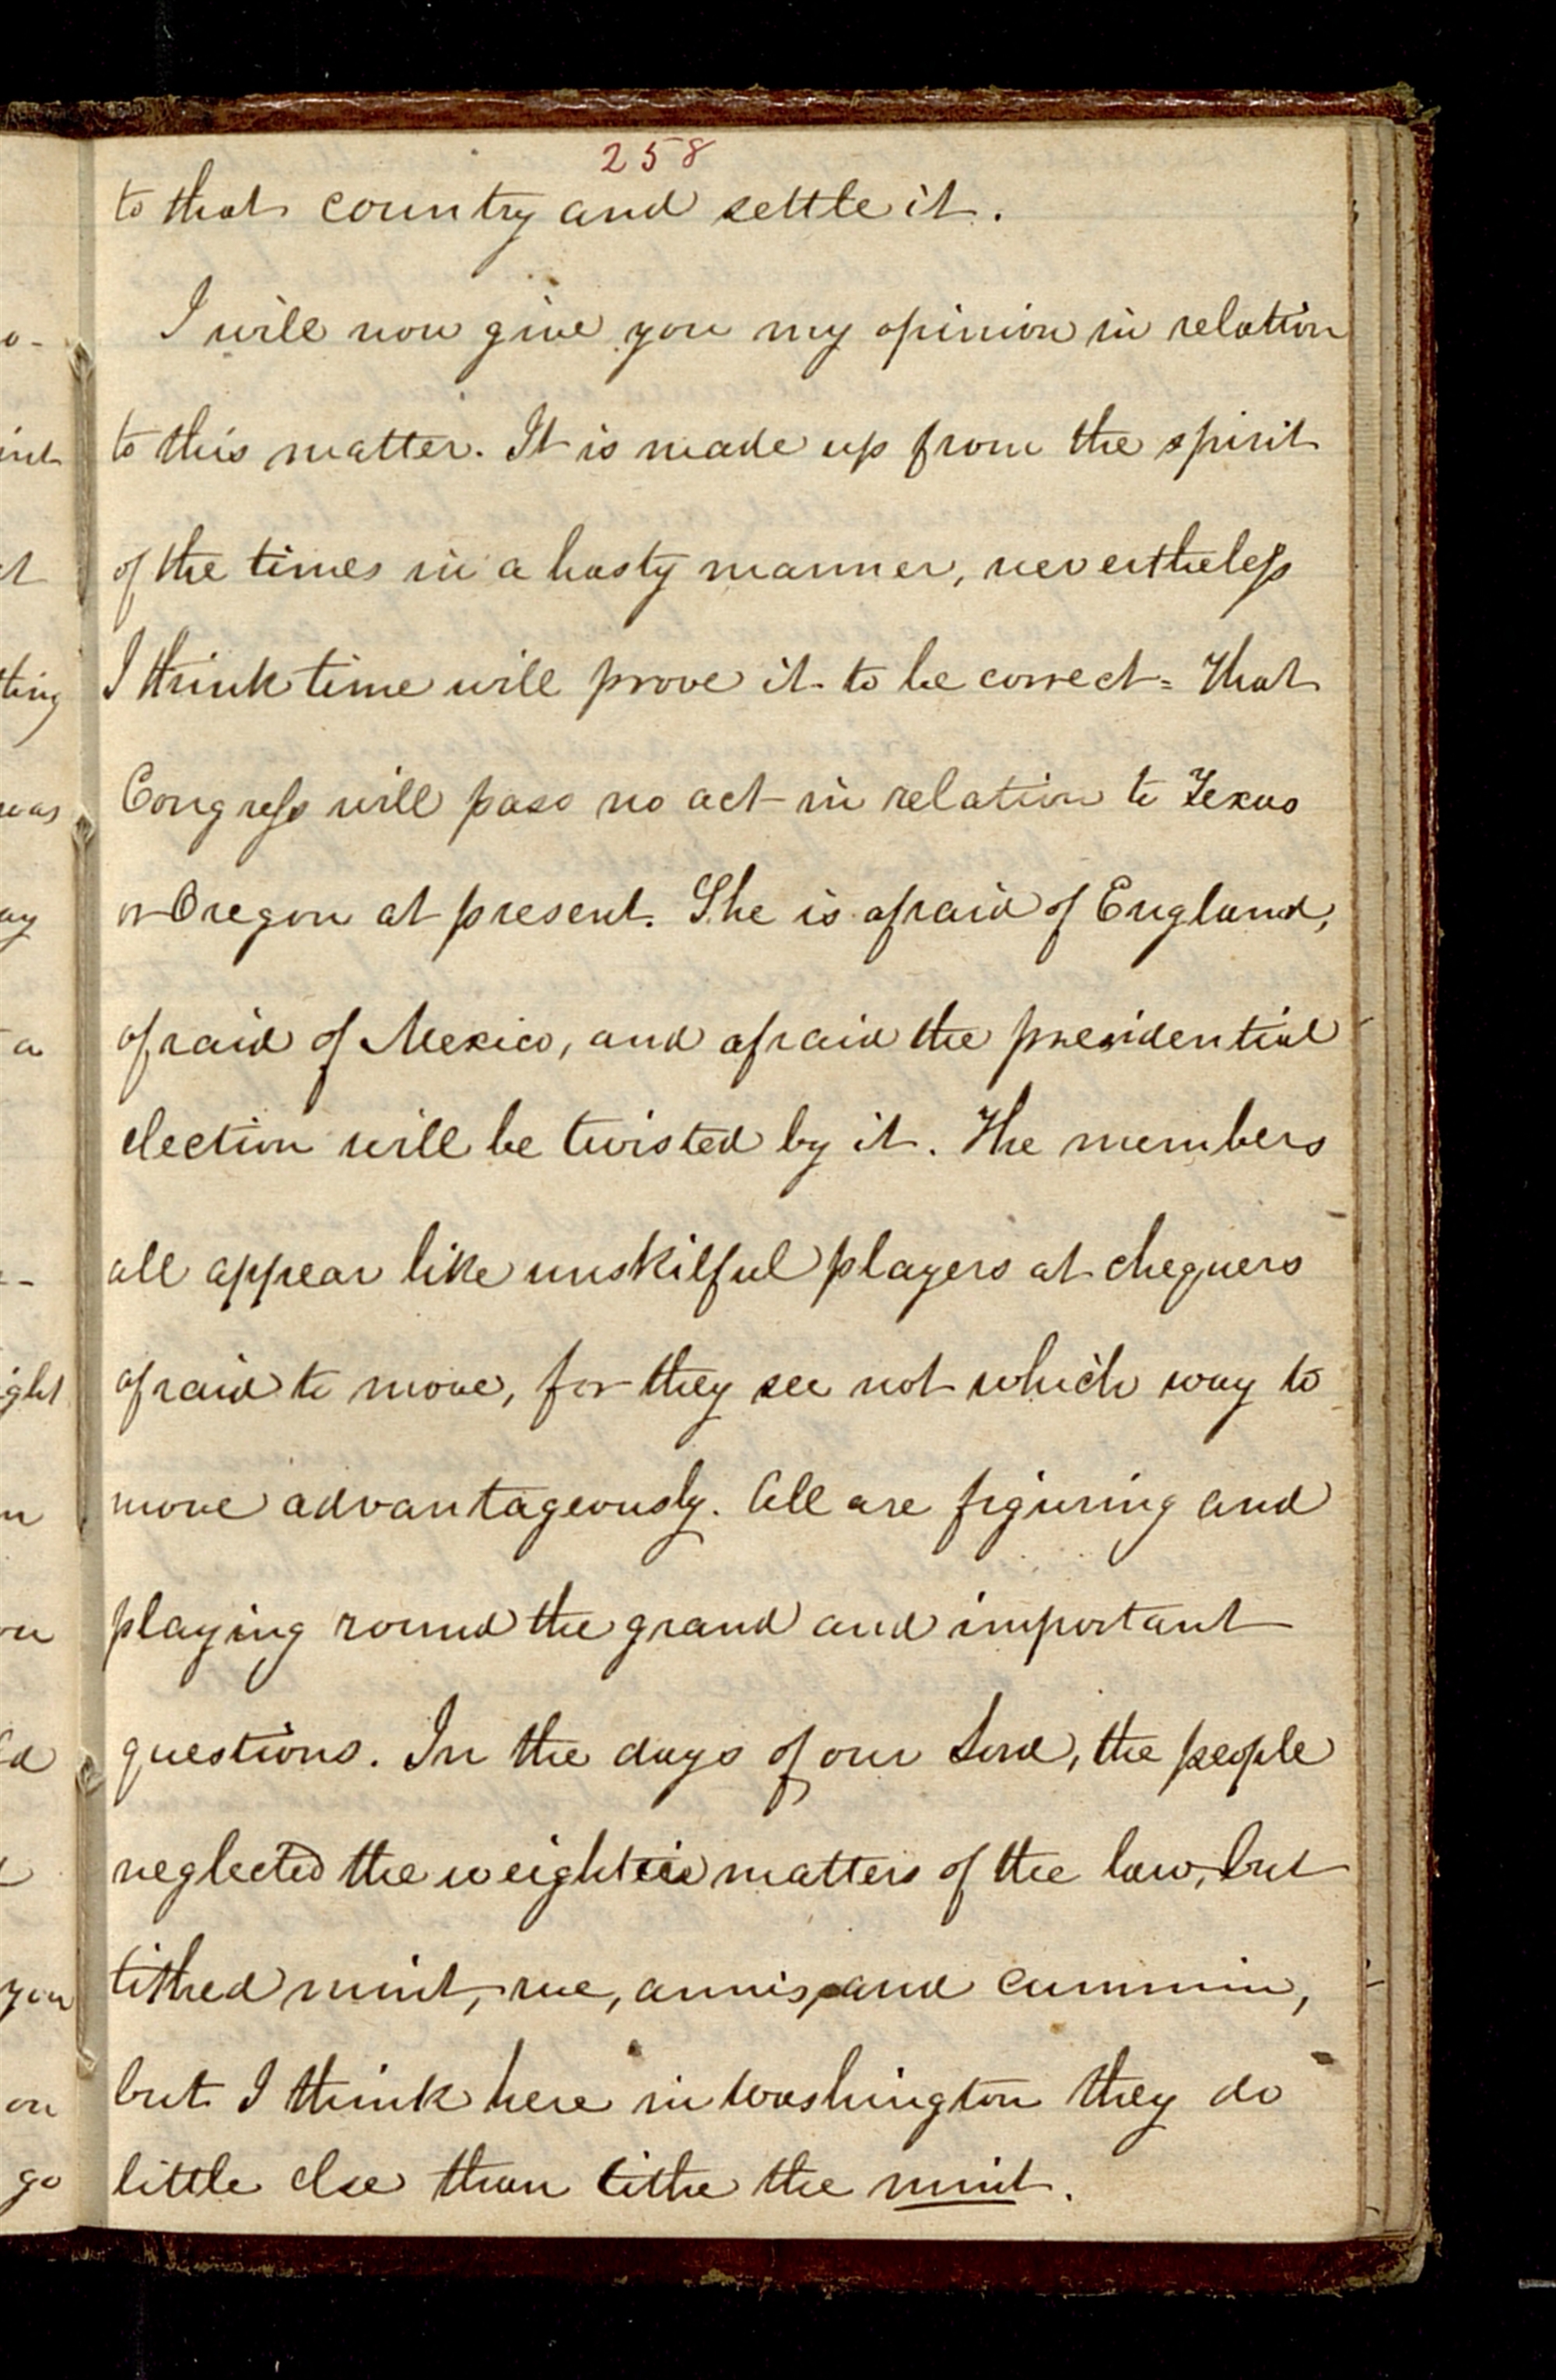 258
to that country and settle it.
I will now give you my opinion in relation
to this matter. It is made up from the spirit
of the times in a hasty manner, nevertheless
I think time will prove it to be correct = That
Congress will pass no act in relation to Texas
or Oregon at present. She is afraid of England,
afraid of Mexico, and afraid the presidential
election will be twisted by it. The members
all appear like unskilful players at chequers
afraid to move, for they see not which way to
move advantageously. All are figuring and
playing round the grand and important
questions. In the days of our Lord, the people
neglected the weightier matters of the law, but
tithed mint, rue, annis, and cummin,
but I think here in Washington they do
little else than tithe the mint.